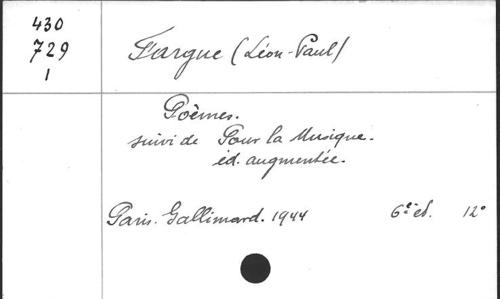 430
729
1
Fargue (Léon-Paul)
Poèmes.
suivi de Pour la Musique.
éd. augmentée.
Paris. Gallimard. 1944 6e éd. 12°